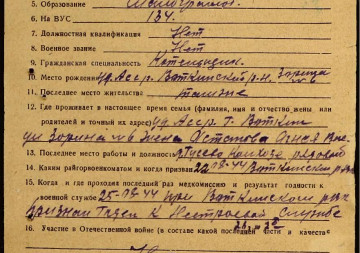 5. Образование
6. На ВУС 134.
7. Должностная квалификация Нет
8. Военное звание Нет
9. Гражданская специальность
10. Место рождения Уд. Асср. Воткинский р-н.
11. Последнее место жительства
12. Где проживает в настоящее время семья (фамилия, имя и отчество жены или
родителей и точный их адрес) Уд Асср г. Воткин
ул Зорина Жена
13. Последнее место работы и должность рядовой
14. Каким райгорвоенкоматом и когда призван 22-08-44 Воткинским
15. Когда и где проходил последний раз медкомиссию и результат годности к
военной службе 25-08-44 при Воткинском
признан Годен к Нестроевой службе
16. Участие в Отечественной войне (в составе какой последней части и в качестве